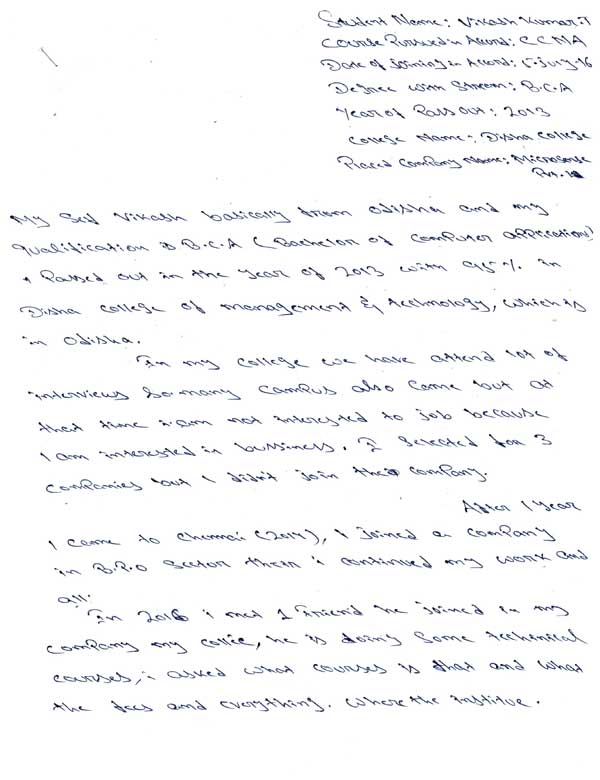 Student Name: Vikash Kumar.T
Course Pursued in Accord: CCNA
Date of Joining in Accord: 5-July-16
Degree with Stream: B.C.A
Year of Pass Out: 2013
College Name: Disha College
Placed Company Name: Microsense
Pvt. 
My Self Vikash basically from Odisha and my
qualification is B.C.A (Bachelor of Computer Applications)
I Passed out in the year of 2013 with 95% in
Disha College of Management & Technology, which is
in Odisha.
In my college we have attend lot of
interviews so many campus also came but at
that time i am not interested to job because
I am interested in bussiness. I Selected for 3
Companies but I didn't join the company.
After 1 year
I came to Chennai (2014), I joined a company
in B.P.O Sector then i continued my work and
all.
In 2016 i met 1 friend he joined in my
company my collie, he is doing some techenical
courses, i asked what courses is that and what
the fees and everything. Where the institue.